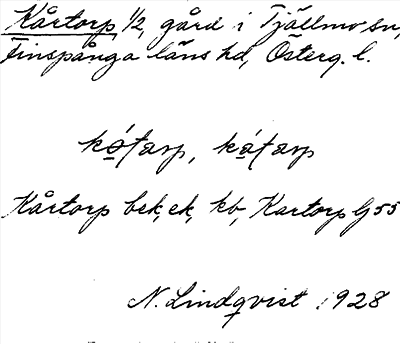 Kårtorp, 1/2, gård i Tjällmo sn,
Finspånga läns hd, Österg. l.
kó̱tarp, ká̱tarp
Kårtorp bek, ek, kb, Kartorp G 55
N. Lindqvist 1928